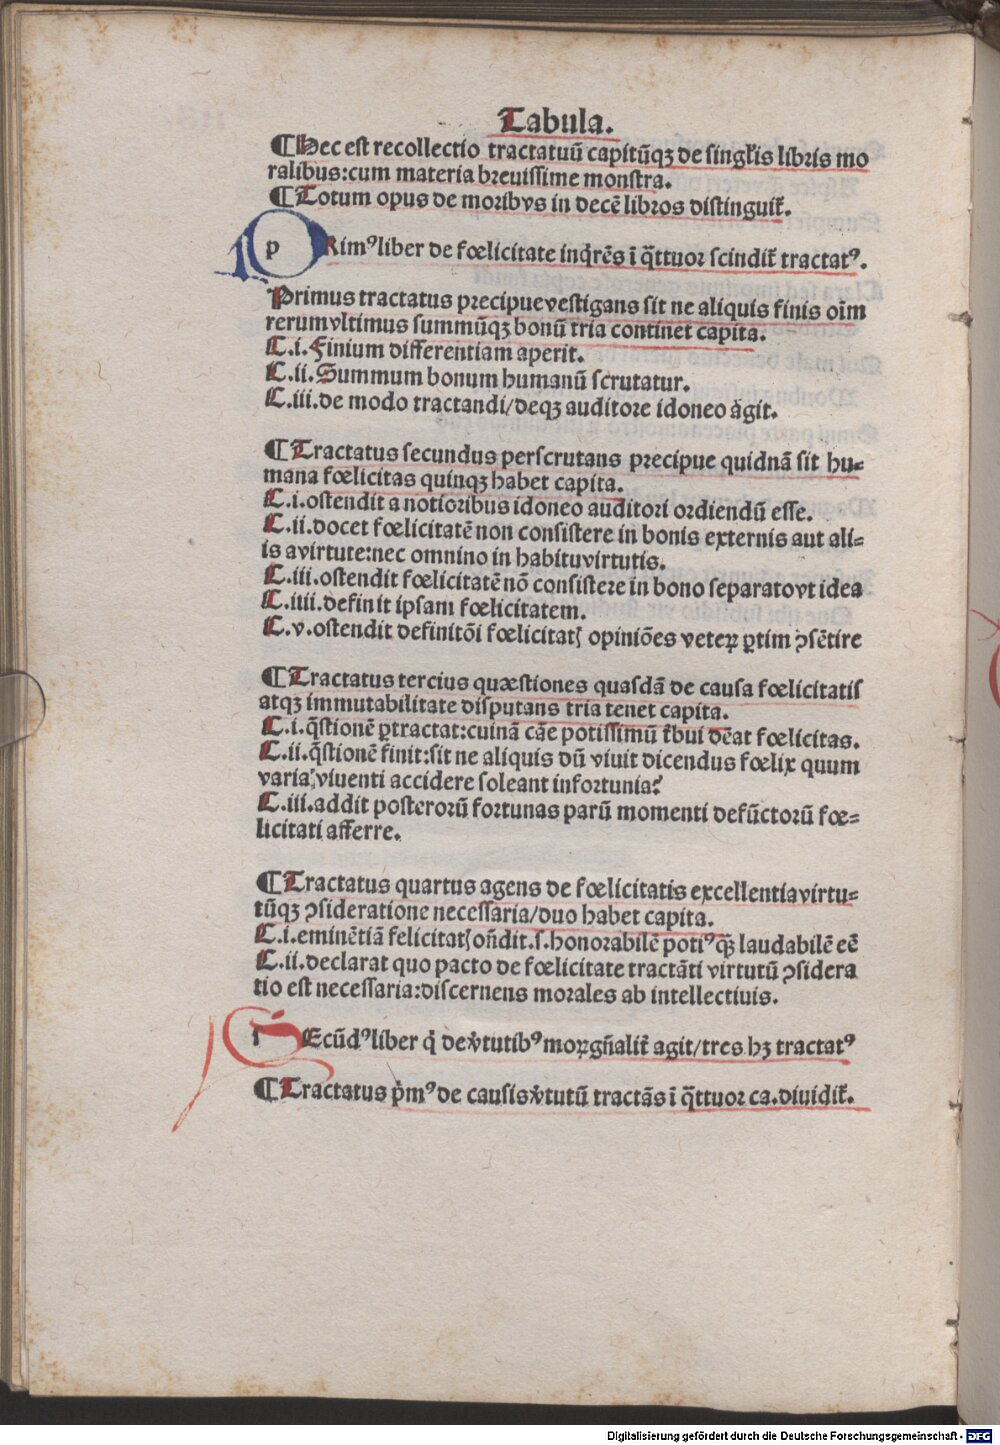 Tabula.
¶Hec est recollectio tractatuū capitūqꝫ de singl̓is libris mo
ralibus:cum materia breuissime monstra.
¶Totum opus de moribvs in decē libros distinguit᷑.
pRimꝰ liber de fœlicitate inq̇rēs ī q̄ttuor scindit᷑ tractatꝰ.
Primus tractatus precipue vestigans sit ne aliquis finis oīm
rerum vltimus summūqꝫ bonū tria continet capita.
C.i.Finium differentiam aperit.
C.ii.Summum bonum humanū scrutatur.
C.iii.de modo tractandi/deqꝫ auditore idoneo agit.
¶Tractatus secundus perscrutans precipue quidnā sit hu⸗
mana fœlicitas quinqꝫ habet capita.
C.i.ostendit a notioribus idoneo auditori ordiendū esse.
C.ii.docet fœlicitatē non consistere in bonis externis aut ali⸗
is a virtute:nec omnino in habitu virtutis.
C.iii.ostendit fœlicitatē nō consistere in bono separato vt idea
C.iiii.definit ipsam fœlicitatem.
C.v.ostendit definitōi fœlicitatꝭ opiniōes veteꝝ ꝑtim ꝯsētire
¶Tractatus tercius quæstiones quasdā de causa fœlicitatis
atqꝫ immutabilitate disputans tria tenet capita.
C.i.q̄stionē ꝑtractat:cuinā cāe potissimū t̓bui dēat fœlicitas.
C.ii.q̄stionē finit:sit ne aliquis dū viuit dicendus fœlix quum
varia:viuenti accidere soleant infortunia?
C.iii.addit posterorū fortunas parū momenti defūctorū fœ⸗
licitati afferre.
¶Tractatus quartus agens de fœlicitatis excellentia virtu⸗
tūqꝫ ꝯsideratione necessaria/duo habet capita.
C.i.eminētiā felicitatꝭ on̄dit.s.honorabilē potiꝰ qꝫ̄ laudabilē eē
C.ii.declarat quo pacto de fœlicitate tractāti virtutū ꝯsidera
tio est necessaria:discernens morales ab intellectiuis.
sEcūdꝰ liber q̇ de v̓tutibꝰ moꝝ gn̄alit᷑ agit/tres hꝫ tractatꝰ
¶Tractatus p̓mꝰ de causis v̓tutū tractās ī q̄ttuor ca.diuidit᷑.
Digitalisierung gefördert durch die Deutsche Forschungsgemeinschaft - DFG